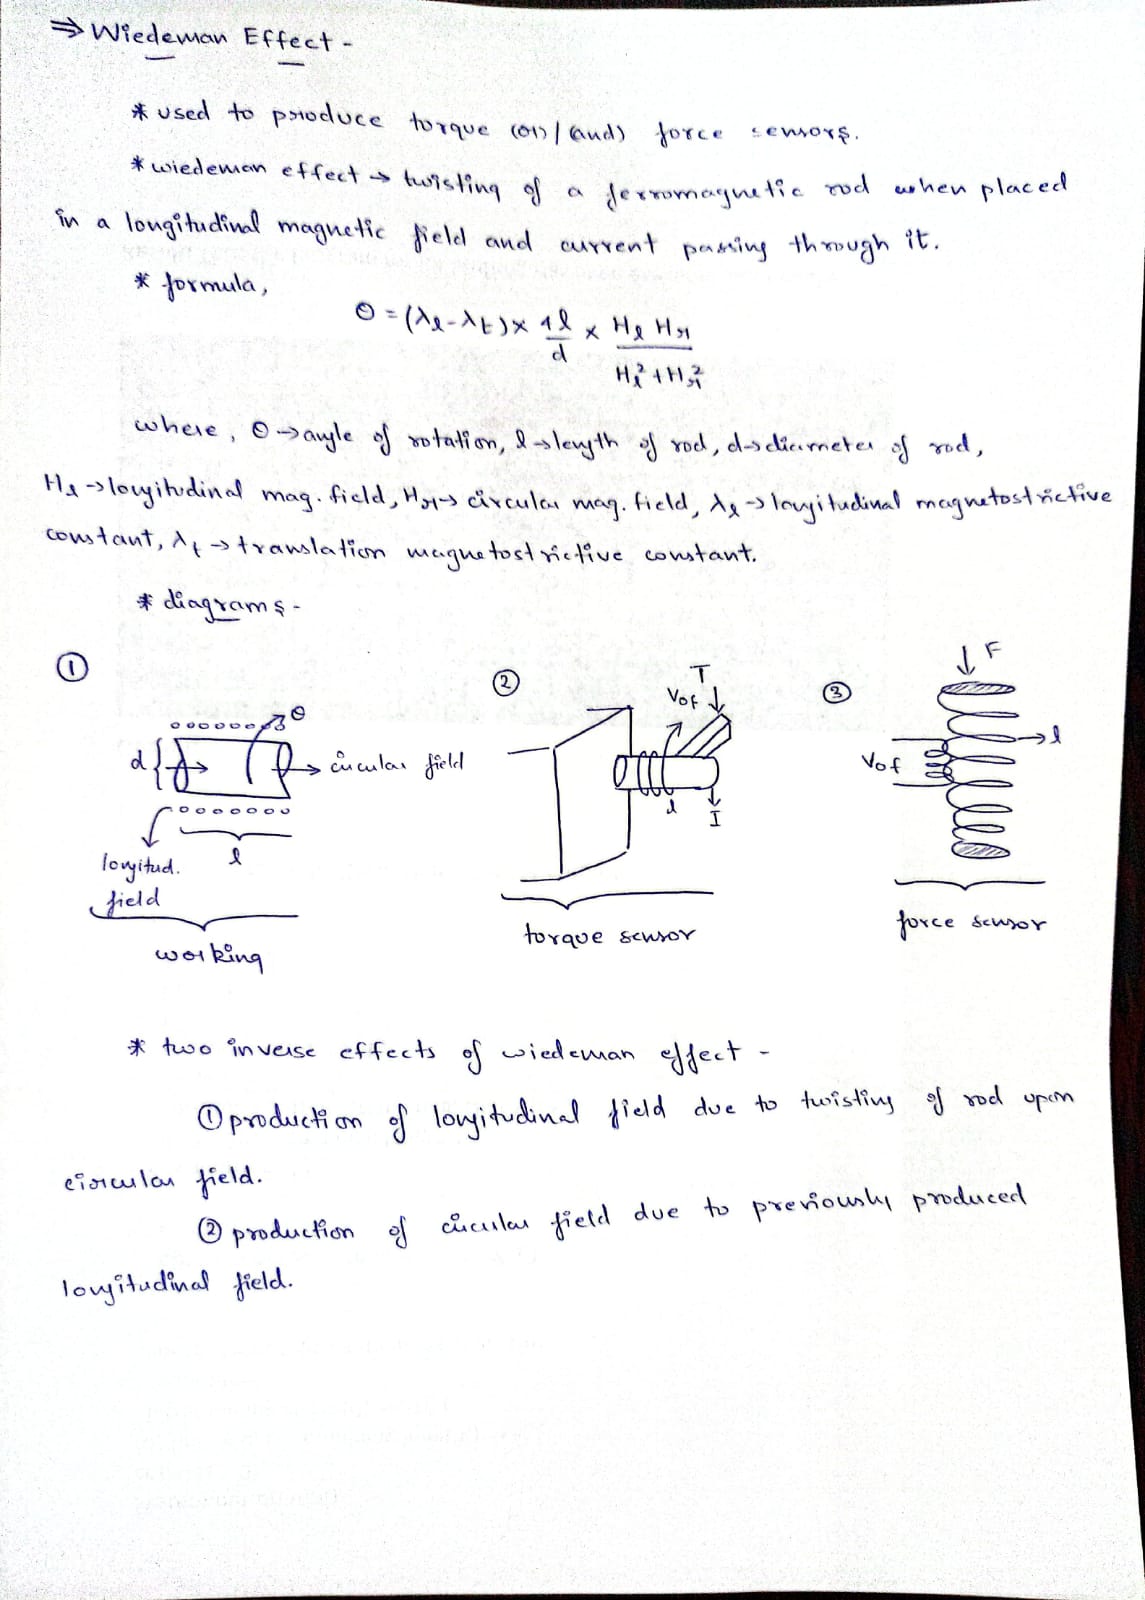 ⇒ Wiedeman Effect -
* used to produce torque (or) / (and) force sensors.
* wiedeman effect → twisting of a ferromagnetic rod when placed
in a longitudinal magnetic field and current passing through it.
* formula,
θ = (λl - λt) × 4l/d × Hl Hr / Hl² + Hr²
where, θ → angle of rotation, l → length of rod, d → diameter of rod,
Hl → longitudinal mag. field, Hr → circular mag. field, λl → longitudinal magnetostrictive
constant, λt → translation magnetostrictive constant.
* diagrams -
①
θ
d
circular field
longitud.
field
l
working
②
T
Vof
l
I
torque sensor
③
F
l
Vof
force sensor
* two inverse effects of wiedeman effect -
① production of longitudinal field due to twisting of rod upon
circular field.
② production of circular field due to previously produced
longitudinal field.